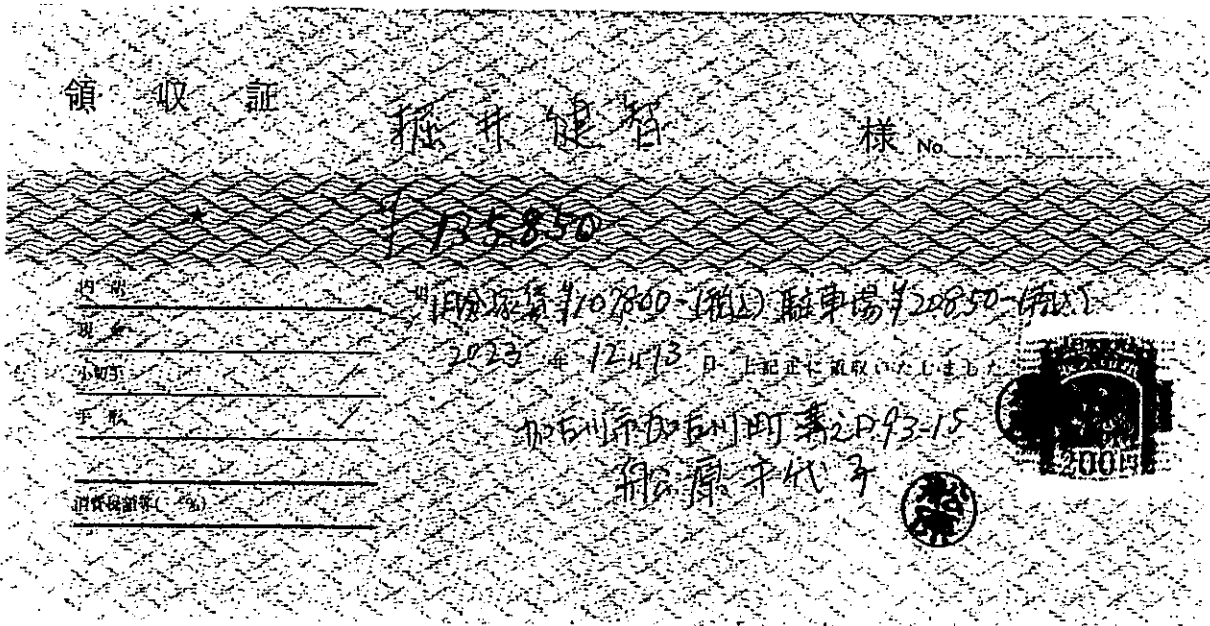 領収証
堀井健智 様 No.
★ ¥135,850
内訳
現金
小切手
手形
消費税額等( %)
但 1月分家賃¥107800-(税込)駐車場¥20850-(税込)
2023年12月13日 上記正に領収いたしました
加古川市加古川町 93-15
船原千代子
200円